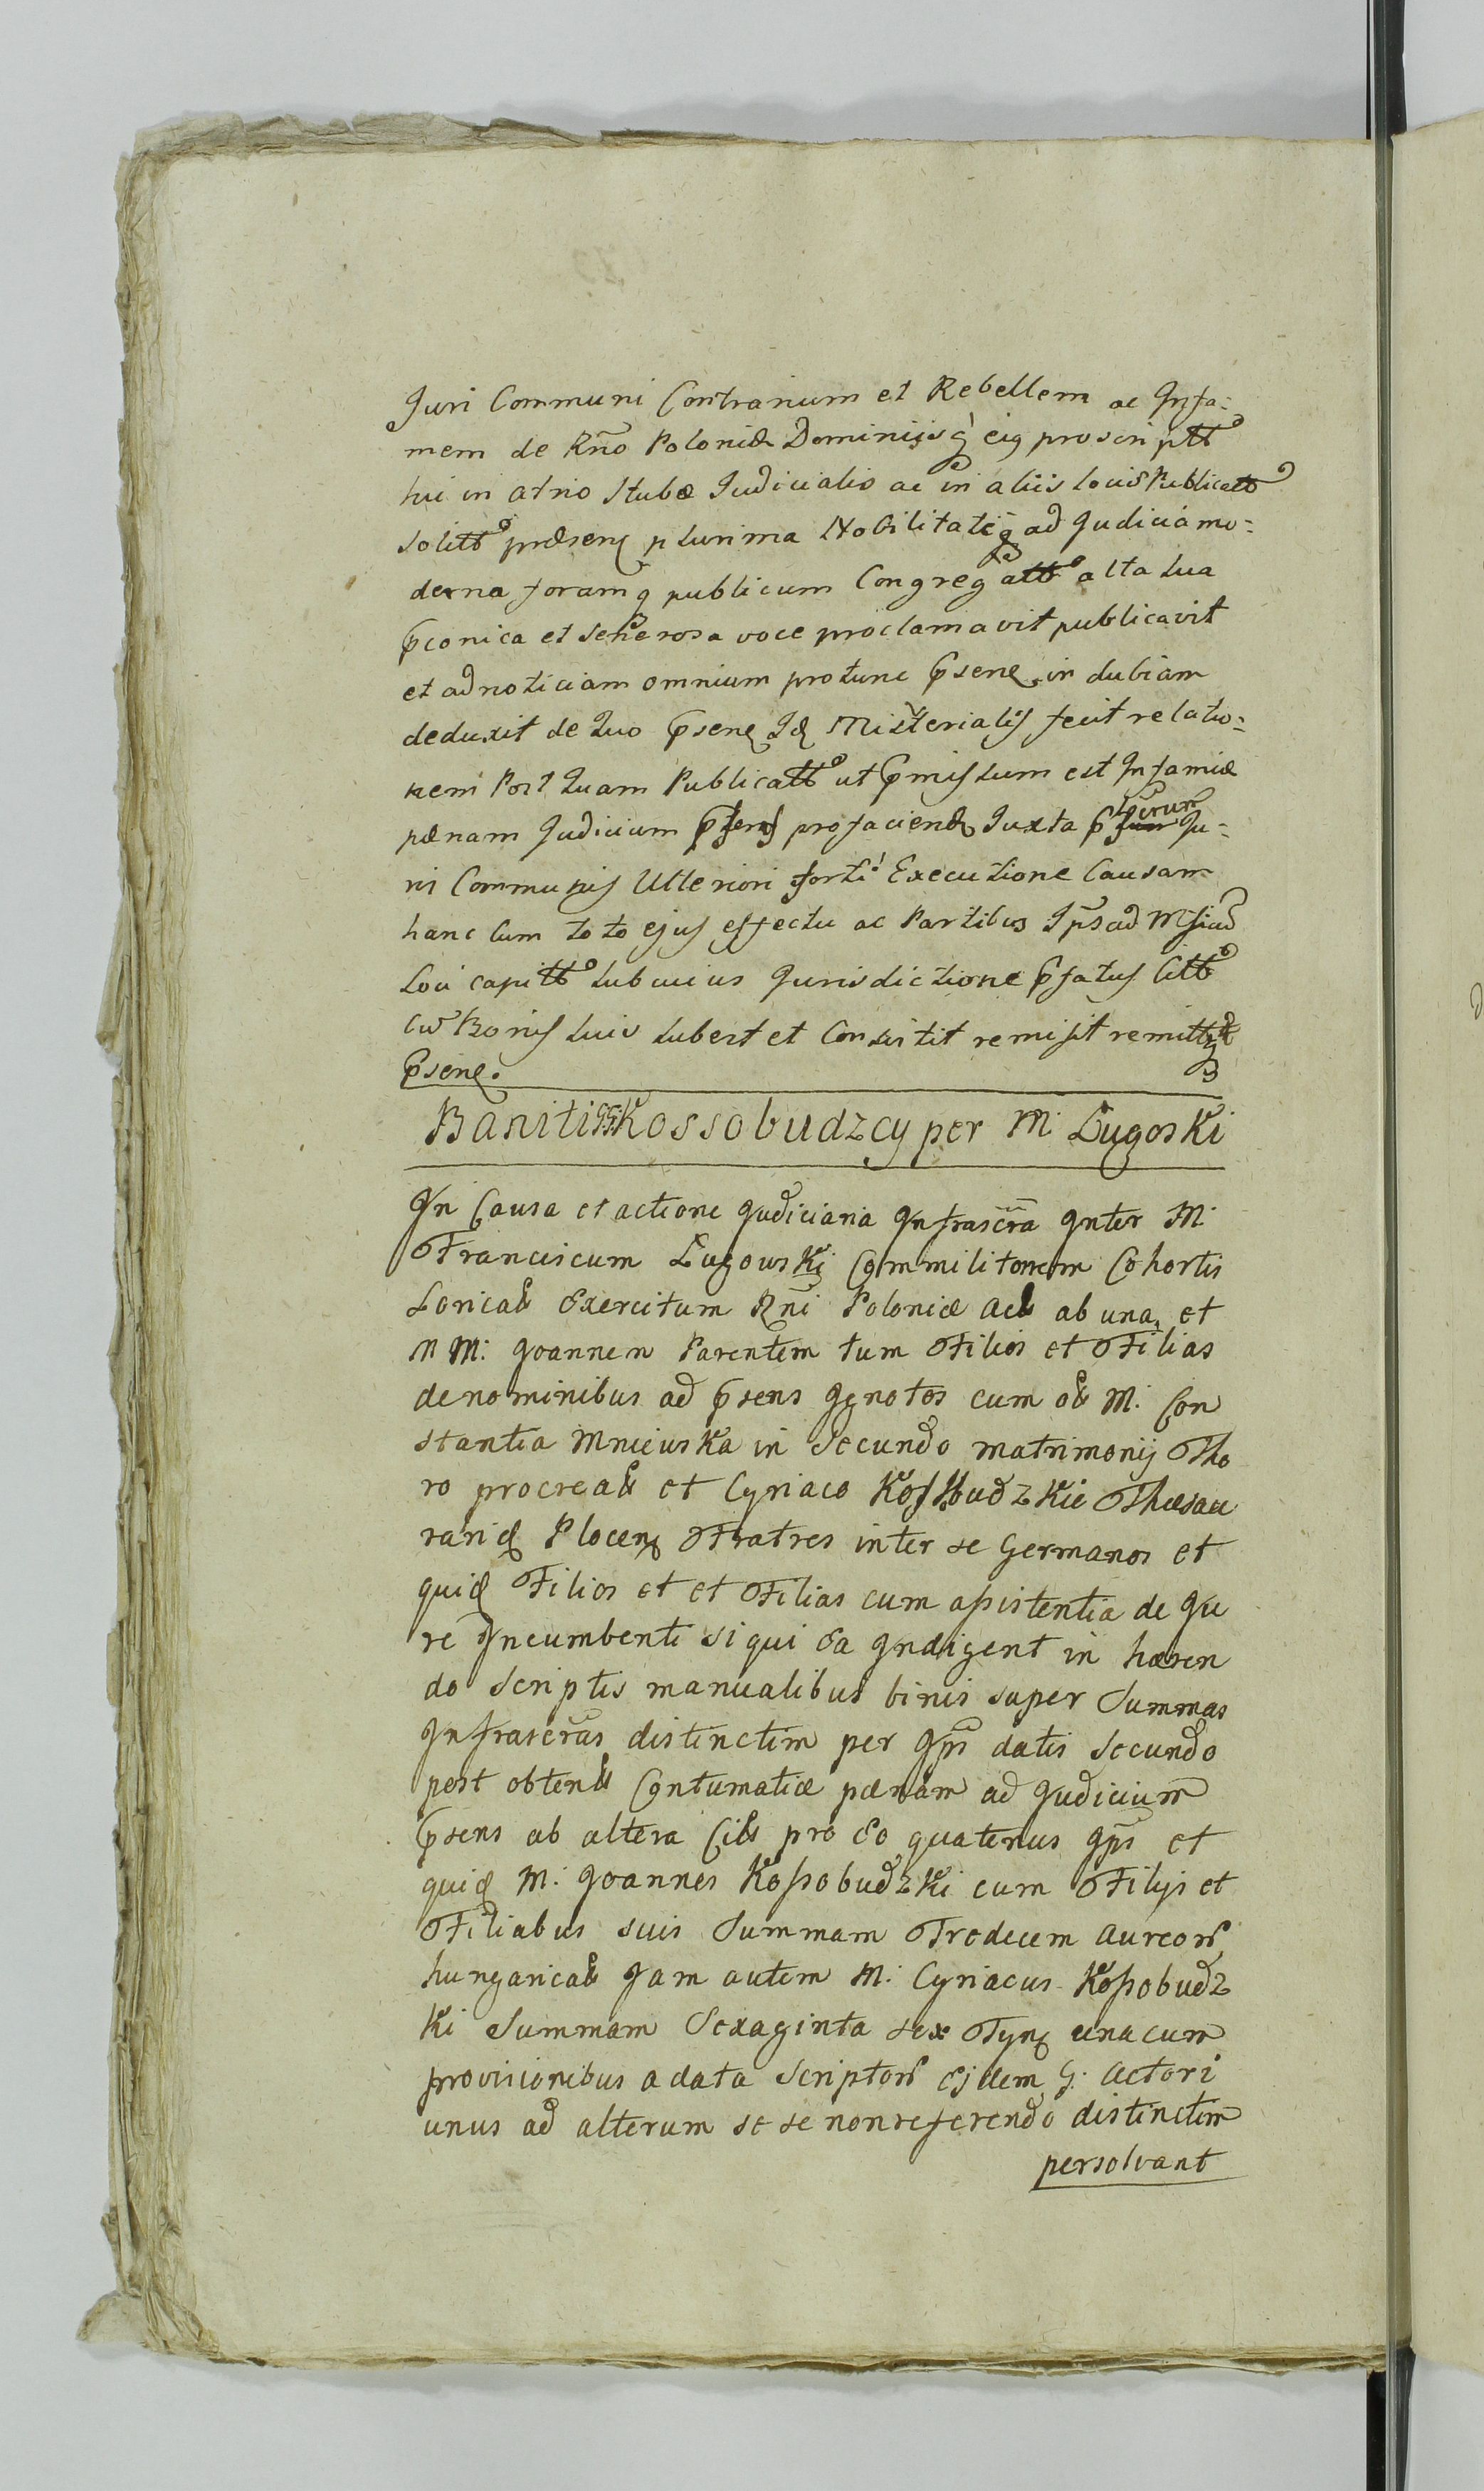 Juri Communi Contrarium et Rebellem ac Infa:
mem de Rno Poloniæ Dominiisq eig proscriptt
hui in atrio Stubæ Judicialis ac in aliis locis Publicatt
solitt præsenę plurima Nobilitateq ad Judicia mo:
derna foramq publicum Congregatt alta sua
pconica et senerosa voce proclamavit publicavit
et ad noticiam omnium protunc psenę in dubiam
deduxit de quo psenę Idę Misterialis fecit relatio:
nem Post quam Publicatt ut pmissum est Infamiæ
pænam Judicium psens pro faciendę Juxta p Ju:
ri Communis Ulteriori forti Executione Causam
hanc cum toto ejus effectu ac Partibus Ips ad
Loci capitt sub cuius Jurisdictione pfatus Citt
cum Bonis suis subest et Consistit remisit remitt
psenę.
Baniti Kossobudzcy per M. Ługoski
In Causa et actione Judiciaria Infrascra Inter M.
Franciscum Ługowski Commilitonem Cohortis
Loricat Exercitum Rni Poloniæ act ab una, et
MM: Joannem Parentem tum Filios et Filias
de nominibus ad psens Ignotos cum ot M. Con
stantia Mniewska in Secundo matrimonij Tho
ro procreat et Cyriaco Kossobudzkie Thesau
rarię Plocenę Fratres inter se Germanos et
quidę Filios et et Filias cum assistentia de Ju
re Incumbenti si qui Ea Indigent in hæren
do Scriptis manualibus binis super Summas
Infrascras distinctim per Ips datis Secundo
post obtent Contumatiæ pænam ad Judicium
psens ab altera Cits pro Eo quatenus Ips et
quidę M. Joannes Kossobudzki cum Filijs et
Filiabus suis Summam Tredecem aureor
hungaricat Jam autem M. Cyriacus Kossobudz
ki Summam Sexaginta sex Tynę una cum
provisionibus a data Scriptor Ejdem G. Actori
unus ad alterum se se non referendo distinctim
persolvant